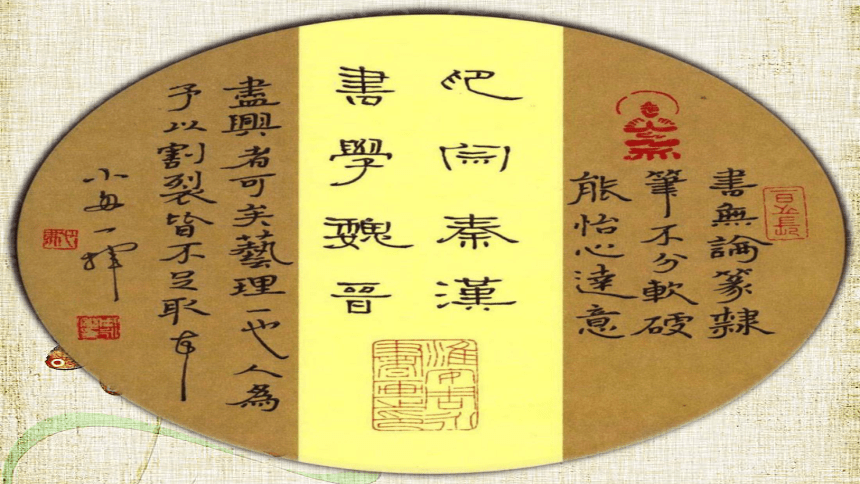 書無論篆隸
筆不分軟硬
能怡心達意
印宗秦漢
書學魏晉
盡興者可矣藝理一也人為
予以割裂皆不足取